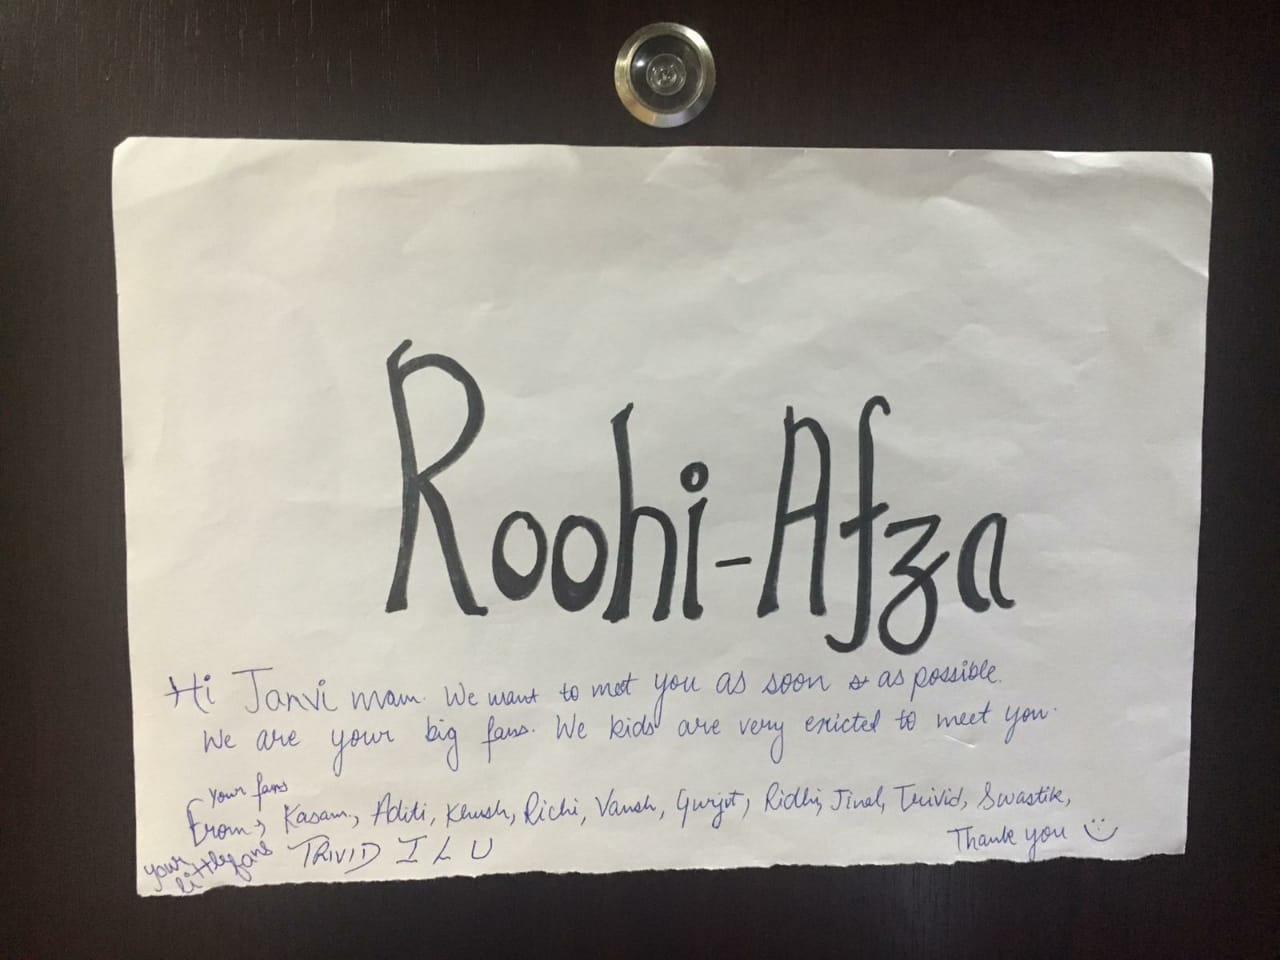 Roohi-Afza
Hi Janvi mam. We want to meet you as soon as possible.
We are your big fans. We kids are very exicted to meet you.
Your fans
From:, Kasam, Aditi, Khush, Richi, Vansh, Gurjot, Ridhi, Jinal, Trivid, Swastik,
your little fans TRIVID I L U
Thank you